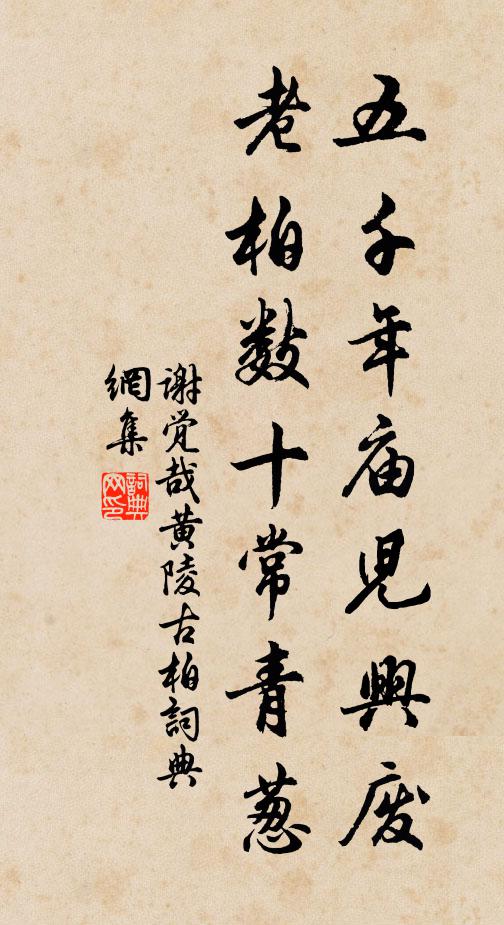 五千年庙児興废
老柏数十常青葱
谢觉哉黄陵古柏詞典
網集
詞典
网印